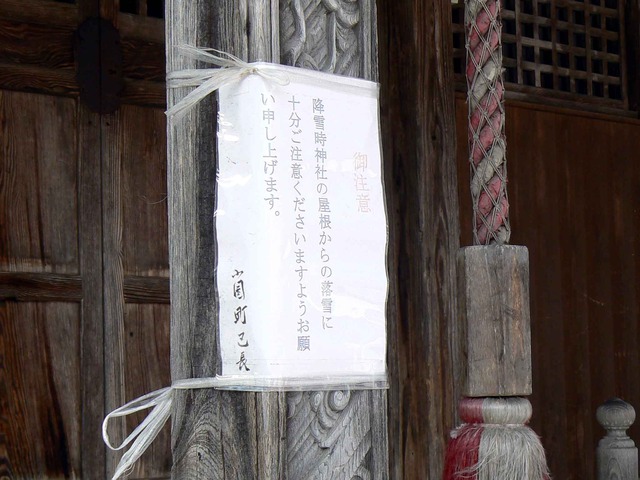 御注意
降雪時神社の屋根からの落雪に
十分ご注意くださいますようお願
い申し上げます。
町
長